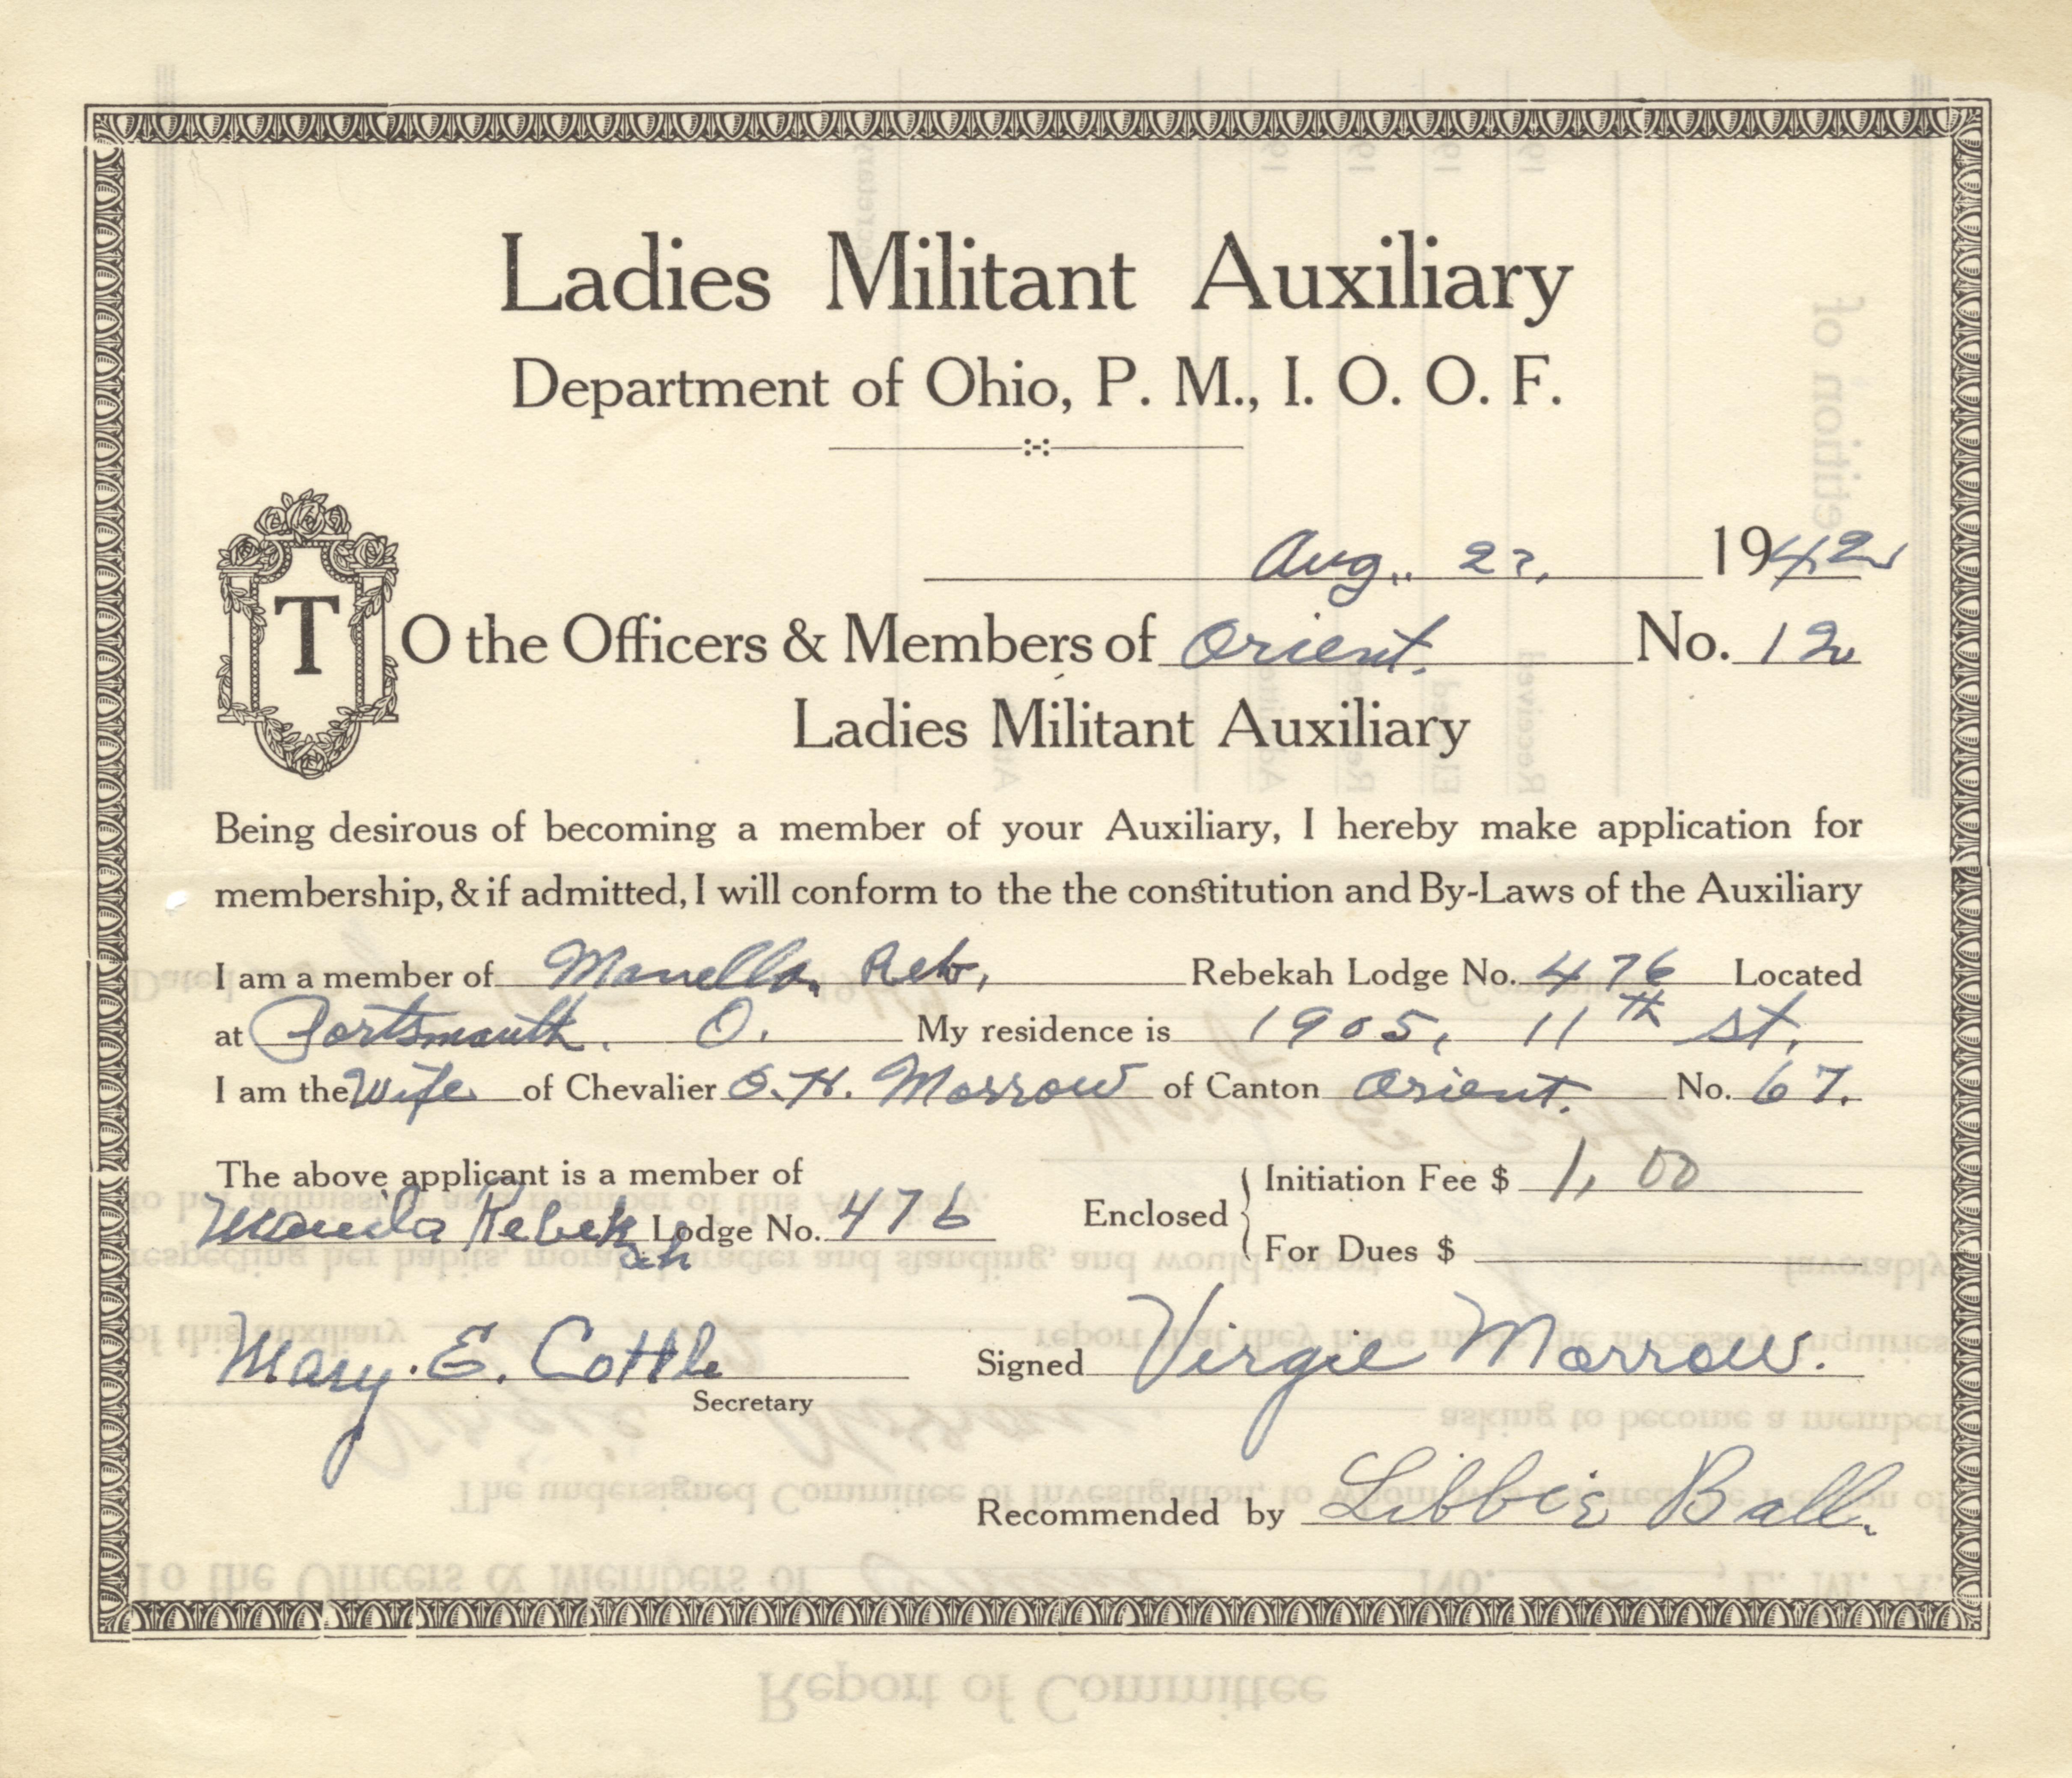 Ladies Militant Auxiliary
Department of Ohio, P. M., I. O. O. F.
Aug. 22, 1942
TO the Officers & Members of Orient. No. 12
Ladies Militant Auxiliary
Being desirous of becoming a member of your Auxiliary, I hereby make application for
membership, & if admitted, I will conform to the the constitution and By-Laws of the Auxiliary
I am a member of Reb, Rebekah Lodge No. 476 Located
at Portsmouth. O. My residence is 1905, 11th st.
I am the Wife of Chevalier O. H. Morrow of Canton Orient. No. 67.
The above applicant is a member of
Rebekah Lodge No. 476
Enclosed { Initiation Fee $ 1,00
For Dues $
Mary. E. Cottle
Secretary
Signed Virgie Morrow.
Recommended by Libbie Ball.
Report of Committee